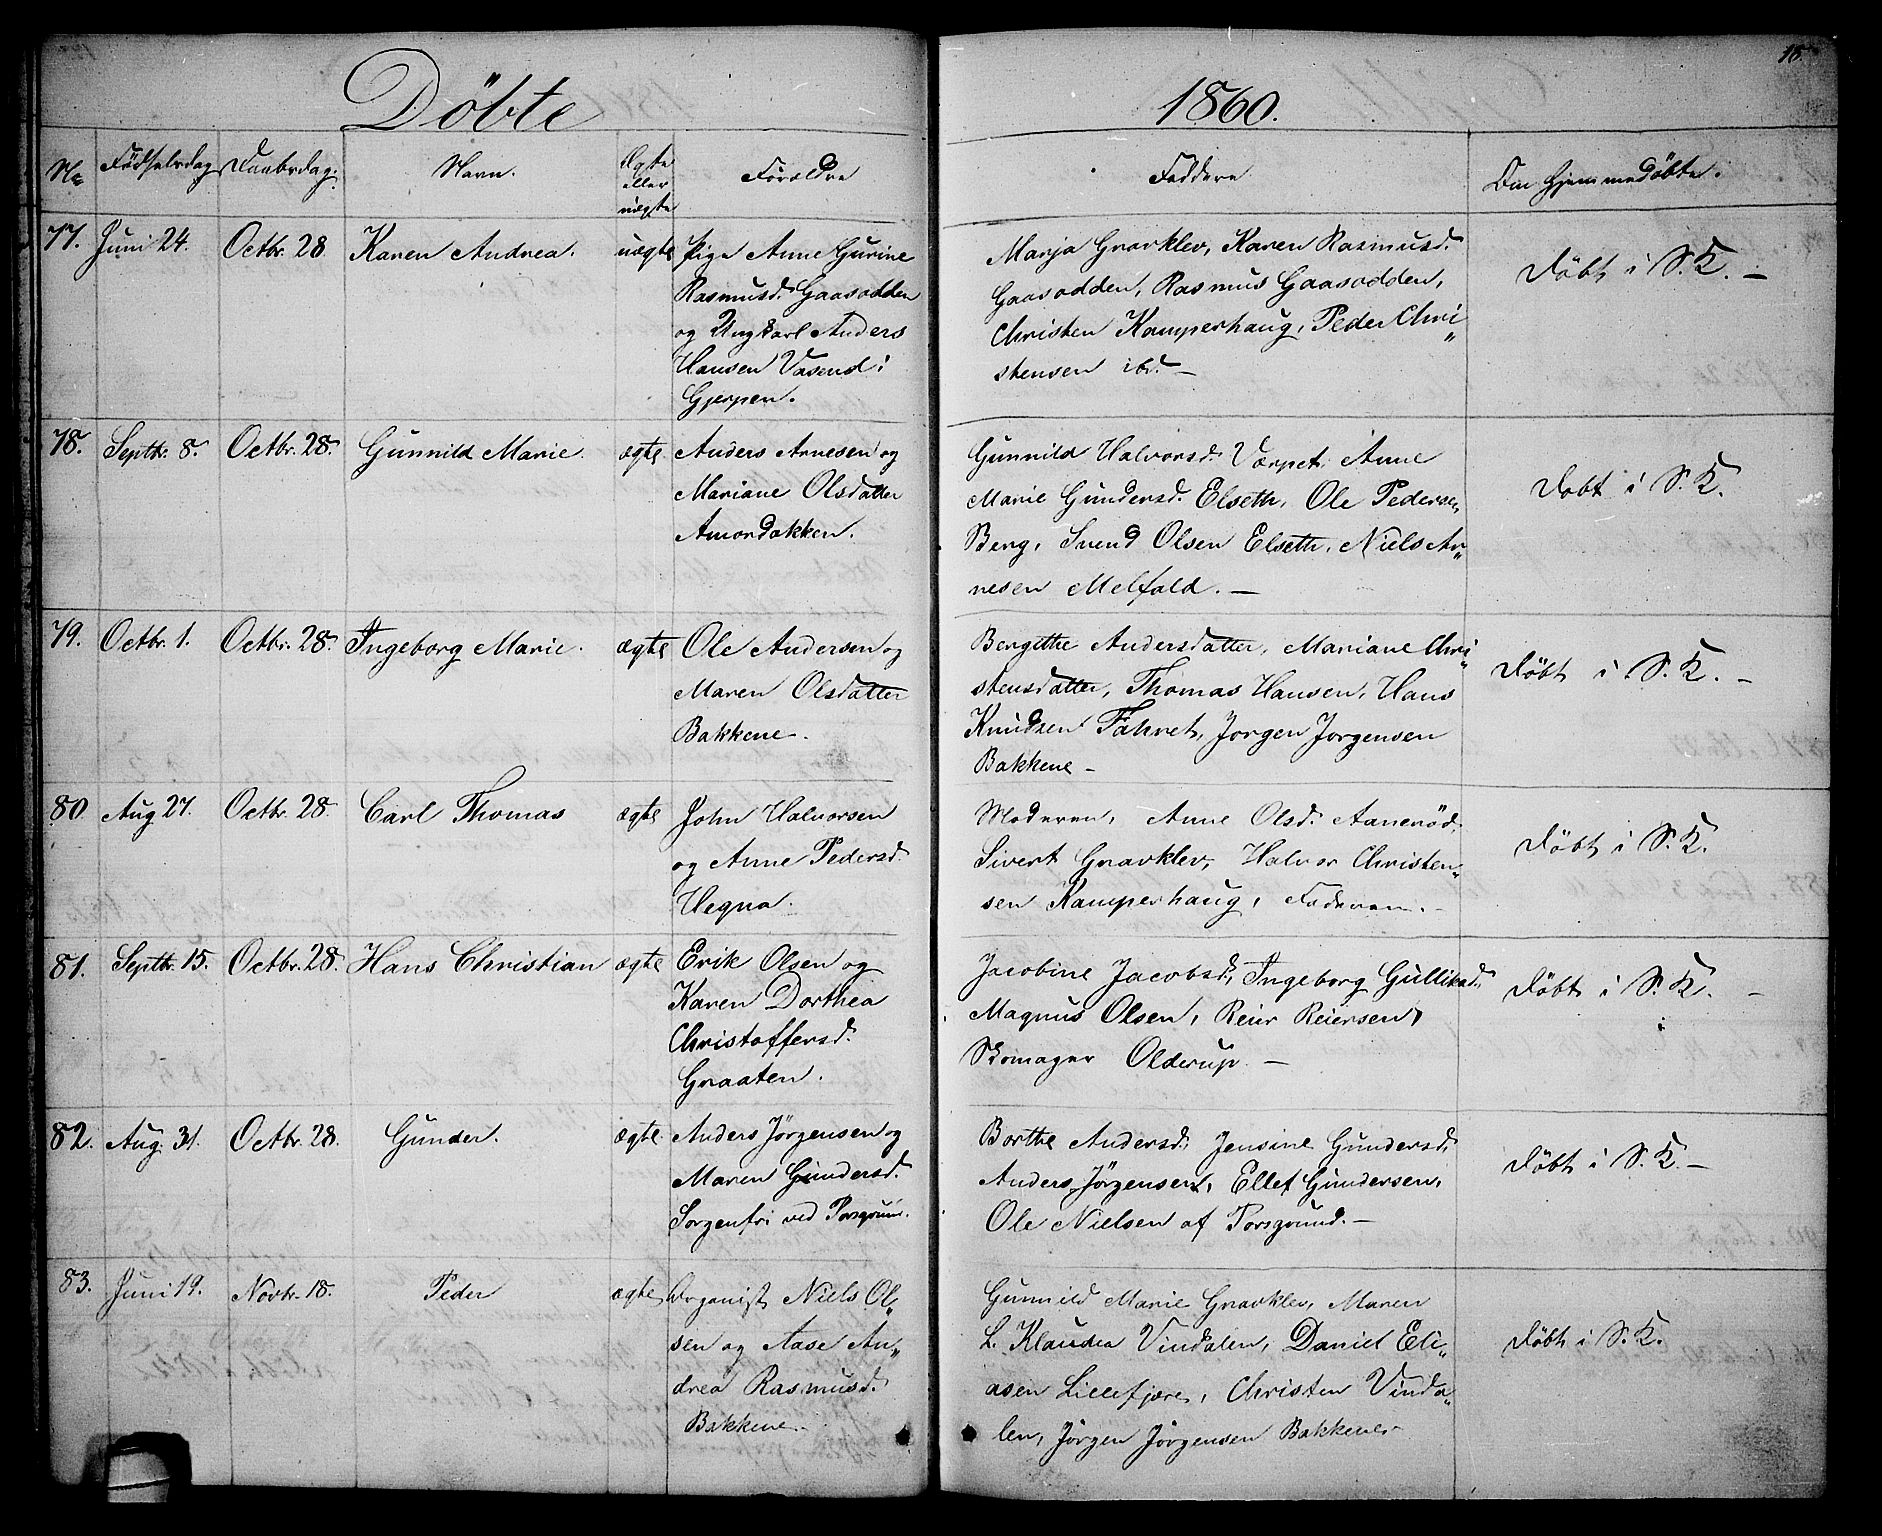 18
Döbte
1860.
No
Födselsdag
Daabsdag.
Navn.
Ægte
eller
uægte
Forældre
Faddere
Om hjemmedöbte.
77.
Juni 24.
Octbr. 28
Karen Andrea.
uægte
Pige Anne Gurine
Rasmusd. Gaasodden
og Ungkarl Anders
Hansen Vasend i
Gjerpen.
Marja Gravklev, Karen Rasmusd.
Gaasodden, Rasmus Gaasodden,
Christen Kamperhaug, Peder Chri„
stensen ibd. –
Döbt i S. K. –
78.
Septbr. 8.
Octbr. 28.
Gunnild Marie.
ægte
Anders Arnesen og
Mariane Olsdatter
Amordakken.
Gunnild Halvorsd. Værpet, Anne
Marie Gundersd. Elseth, Ole Pedersen
Berg, Svend Olsen Elseth, Niels Ar„
nesen Melfald. –
Dobt i S. K.
79.
Octbr. 1.
Octbr. 28.
Ingeborg Marie.
ægte
Ole Andersen og
Maren Olsdatter
Bakkene.
Bergithe Andersdatter, Mariane Chri„
stensdatter, Thomas Hansen, Hans
Knudsen Fahret, Jorgen Jorgensen
Bakkene –
Döbt i S. K. –
80.
Aug 27.
Octbr. 28.
Carl Thomas
ægte
John Halvorsen
og Anne Pedersd.
Hegna.
Moderen, Anne Olsd. Aanerød,
Sivert Gravklev, Halvor Christen„
sen Kamperhaug, Faderen. –
Döbt i S. K.
81.
Septbr. 15.
Octbr. 28.
Hans Christian
ægte
Erik Olsen og
Karen Dorthea
Christoffersd.
Graaten.
Jacobine Jacobsd., Ingeborg Gulliksd.,
Magnus Olsen, Reier Reiersen,
Skomager Olderup. –
Döbt i S. K. –
82.
Aug. 31.
Octbr. 28.
Gunder.
ægte
Anders Jörgensen og
Maren Gundersd.
Sorgenfri ved Porsgrund.
Borthe Andersd., Jensine Gundersd.,
Anders Jörgensen, Ellef Gundersen,
Ole Nielsen af Porsgrund. –
Döbt i S. K. –
83.
Juni 19.
Novbr. 18.
Peder
ægte
Organist Niels Ol„
sen og Aase An„
drea Rasmusd.
Bakkene.
Gunnild Marie Gravklev, Maren
L. Klaudia Vindalen, Daniel Eli„
asen Lillefjære, Christen Vinda„
len, Jörgen Jörgensen Bakkene –
Döbt i S. K.